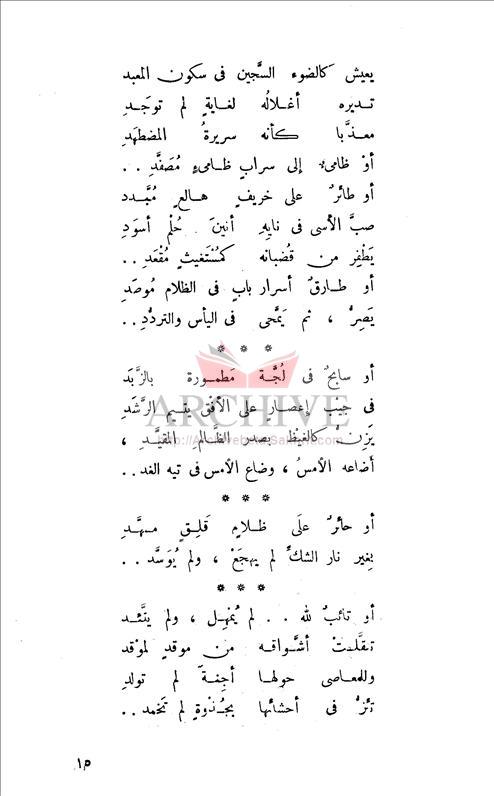 يعيش كالضوء السَّجين فى سكون المعبد
تديره أغلالُه لغايةٍ لم توجَدِ
معذَّبا كأنه سريرةُ المضطهَدِ
أوْ ظامىءٌ إلى سرابٍ ظامىءٍ مُصَفَّدِ . .
أو طائرٌ على خريفٍ هالعٍ مُبَّدد
صبَّ الأسى فى نايِهِ أنينَ حُلْم أسوَدِ
يَطْفِر من قُضبانه كمُسْتَغيثٍ مُقْعَدِ . .
أو طارقٌ أسرار بابٍ فى الظلام مُوصَدِ
يَصِرُّ ، ثم يَمَّحى فى اليأس والتردُّدِ . .
* * *
أو سابحٌ فى لُجَّة مَطمورة بالزَّبَد
فى جيب إعصارٍ على الأفْق يتيم الرَّشَدِ
يَزِنُّ كالغيْظ بصدر الظَّالم المقيَّد ،
أضاعه الأمسُ ، وضاع الأمس فى تيه الغد . .
* * *
أو حائرٌ علَى ظلامٍ قَلِقٍ مسهَّدِ
بغير نار الشكِّ لم يهجَعْ ، ولم يُوَسَّد . .
* * *
أو تائبٌ لله . . لم يُمْهل ، ولم يتَّئد
تقلَّبتْ أشواقه من موقدٍ لموْقد
وللمعاصى حولها أجِنةٌ لم تولدِ
تَئزُّ فى أحشائها بجُذْوةٍ لم تخمد . .
١٥
ARCHIVE